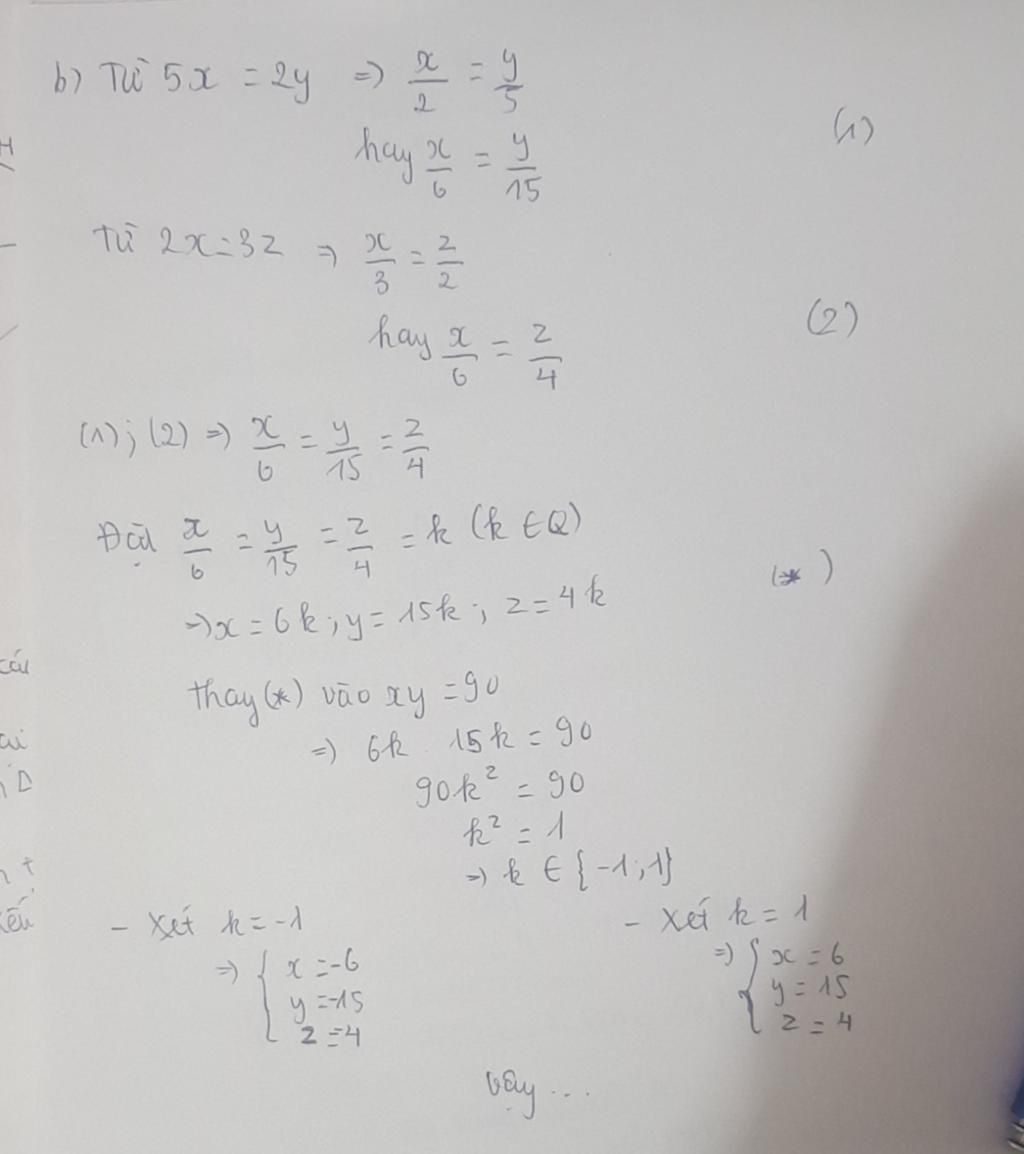 b) Từ 5x = 2y => x/2 = y/5
hay x/6 = y/15 (1)
Từ 2x = 3z => x/3 = z/2
hay x/6 = z/4 (2)
(1); (2) => x/6 = y/15 = z/4
Đặt x/6 = y/15 = z/4 = k (k ∈ Q)
=> x = 6k; y = 15k; z = 4k (*)
thay (*) vào xy = 90
=> 6k . 15k = 90
90k² = 90
k² = 1
=> k ∈ {-1; 1}
- Xét k = -1
=> { x = -6
y = -15
z = -4
- Xét k = 1
=> { x = 6
y = 15
z = 4
Vậy ...